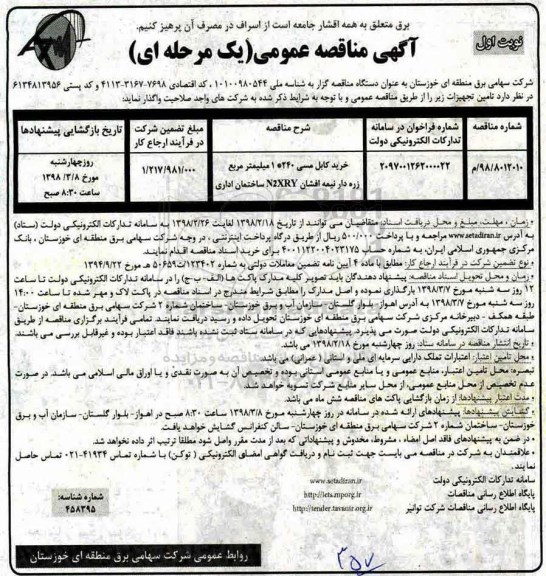 برق متعلق به همه اقشار جامعه است از اسراف در مصرف آن پرهیز کنیم.
نوبت اول
آگهی مناقصه عمومی(یک مرحله ای)
شرکت سهامی برق منطقه ای خوزستان به عنوان دستگاه مناقصه گزار به شناسه ملی ۱۰۱۰۰۹۸۰۵۴۴ ، کد اقتصادی ۷۶۹۸-۳۱۶۷-۴۱۱۳ و کد پستی ۶۱۳۴۸۱۳۹۵۶
در نظر دارد تامین تجهیزات زیر را از طریق مناقصه عمومی و با توجه به شرایط ذکر شده به شرکت های واجد صلاحیت واگذار نماید:
شماره مناقصه | شماره فراخوان در سامانه تدارکات الکترونیکی دولت | شرح مناقصه | مبلغ تضمین شرکت در فرآیند ارجاع کار | تاریخ بازگشایی پیشنهادها
۹۸/۸۰۱۲۰۱۰/م | ۲۰۹۷۰۰۱۲۶۲۰۰۰۰۲۲ | خرید کابل مسی ۲۴۰*۱ میلیمتر مربع زره دار نیمه افشان N2XRY ساختمان اداری | ۱/۲۱۷/۹۸۱/۰۰۰ | روزچهارشنبه مورخ ۱۳۹۸/۳/۸ ساعت ۸:۳۰ صبح
- زمان ، مهلت، مبلغ و محل دریافت اسناد: متقاضیان می توانند از تاریخ ۱۳۹۸/۲/۱۸ لغایت ۱۳۹۸/۲/۲۶ به سامانه تدارکات الکترونیکی دولت (ستاد)
به آدرس www.setadiran.ir مراجعه و با پرداخت ۵۰۰/۰۰۰ ریال از طریق درگاه پرداخت اینترنتی ، در وجه شرکت سهامی برق منطقه ای خوزستان ، بانک
مرکزی جمهوری اسلامی ایران، به شماره حساب ۴۰۰۱۱۲۲۰۰۴۰۲۳۱۷۵ نسبت به خرید اسناد مناقصه اقدام نمایند.
- نوع تضمین شرکت در فرآیند ارجاع کار: مطابق با ماده ۴ آیین نامه تضمین معاملات دولتی به شماره ۱۲۳۴۰۲/ت۵۰۶۵۹ هـ مورخ ۱۳۹۴/۹/۲۲
- زمان و محل تحویل اسناد مناقصه: پیشنهاد دهندگان باید تصویر کلیه مدارک پاکت ها (الف-ب-ج) را در سامانه تدارکات الکترونیکی دولت تا ساعت
۱۲ روز سه شنبه مورخ ۱۳۹۸/۳/۷ بارگذاری نموده و اصل مدارک را مطابق شرایط مندرج در اسناد مناقصه در پاکت لاک و مهر شده تا ساعت ۱۴:۰۰
روز سه شنبه مورخ ۱۳۹۸/۳/۷ به آدرس اهواز- بلوار گلستان- سازمان آب و برق خوزستان- ساختمان شماره ۲ شرکت سهامی برق منطقه ای خوزستان-
طبقه همکف - دبیرخانه مرکزی شرکت سهامی برق منطقه ای خوزستان تحویل داده و رسید دریافت نمایند. تمامی فرآیند برگزاری مناقصه از طریق
سامانه تدارکات الکترونیکی دولت صورت می پذیرد. پیشنهادهایی که در سامانه ستاد ثبت نشده باشند فاقد اعتبار بوده و غیرقابل بررسی می باشند.
- تاریخ انتشار مناقصه در سامانه ستاد: روز چهارشنبه مورخ ۱۳۹۸/۲/۱۸ می باشد.
- محل تامین اعتبار: اعتبارات تملک دارایی سرمایه ای ملی و استانی (عمرانی) می باشد
تبصره: محل تامین اعتبار، منابع عمومی و یا منابع عمومی استانی بوده و تخصیص آن به صورت نقدی و یا اوراق مالی اسلامی می باشد. در صورت
عدم تخصیص از محل منابع عمومی، از محل سایر منابع شرکت تسویه خواهد شد.
- مدت اعتبار پیشنهادها: از زمان بازگشایی پاکت های مناقصه شش ماه می باشد.
- گشایش پیشنهادها: پیشنهادهای ارائه شده در سامانه در روز چهارشنبه مورخ ۱۳۹۸/۳/۸ ساعت ۸:۳۰ صبح در اهواز- بلوار گلستان- سازمان آب و برق
خوزستان- ساختمان شماره ۲ شرکت سهامی برق منطقه ای خوزستان- سالن کنفرانس گشایش خواهد یافت.
- در ضمن به پیشنهادهای فاقد اصل امضاء ، مشروط، مخدوش و پیشنهاداتی که بعد از مدت مقرر واصل شود مطلقا ترتیب اثر داده نخواهد شد.
- علاقمندان به شرکت در مناقصه می بایست جهت ثبت نام و دریافت گواهی امضای الکترونیکی ( توکن) با شماره تماس ۴۱۹۳۴-۰۲۱ تماس حاصل
نمایند.
سامانه تدارکات الکترونیکی دولت www.setadiran.ir
پایگاه اطلاع رسانی مناقصات http://iets.mporg.ir
پایگاه اطلاع رسانی مناقصات شرکت توانیر http://tender.tavanir.org.ir
شماره شناسه:
۴۵۸۳۹۵
روابط عمومی شرکت سهامی برق منطقه ای خوزستان
۳۵۷